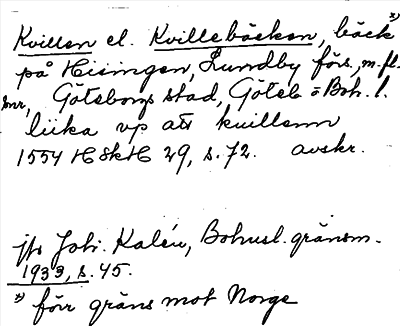 Kvillen el. Kvillebäcken, bäck x)
på Hisingen, Lundby förs., m. fl.
snr, Göteborgs stad, Göteb o Boh. l.
liika vp att kuillenn
1554 HSkH 29, s. 72. avskr.
jfr Joh. Kalén, Bohusl. gränsm.
1933, s. 45.
x) förr gräns mot Norge